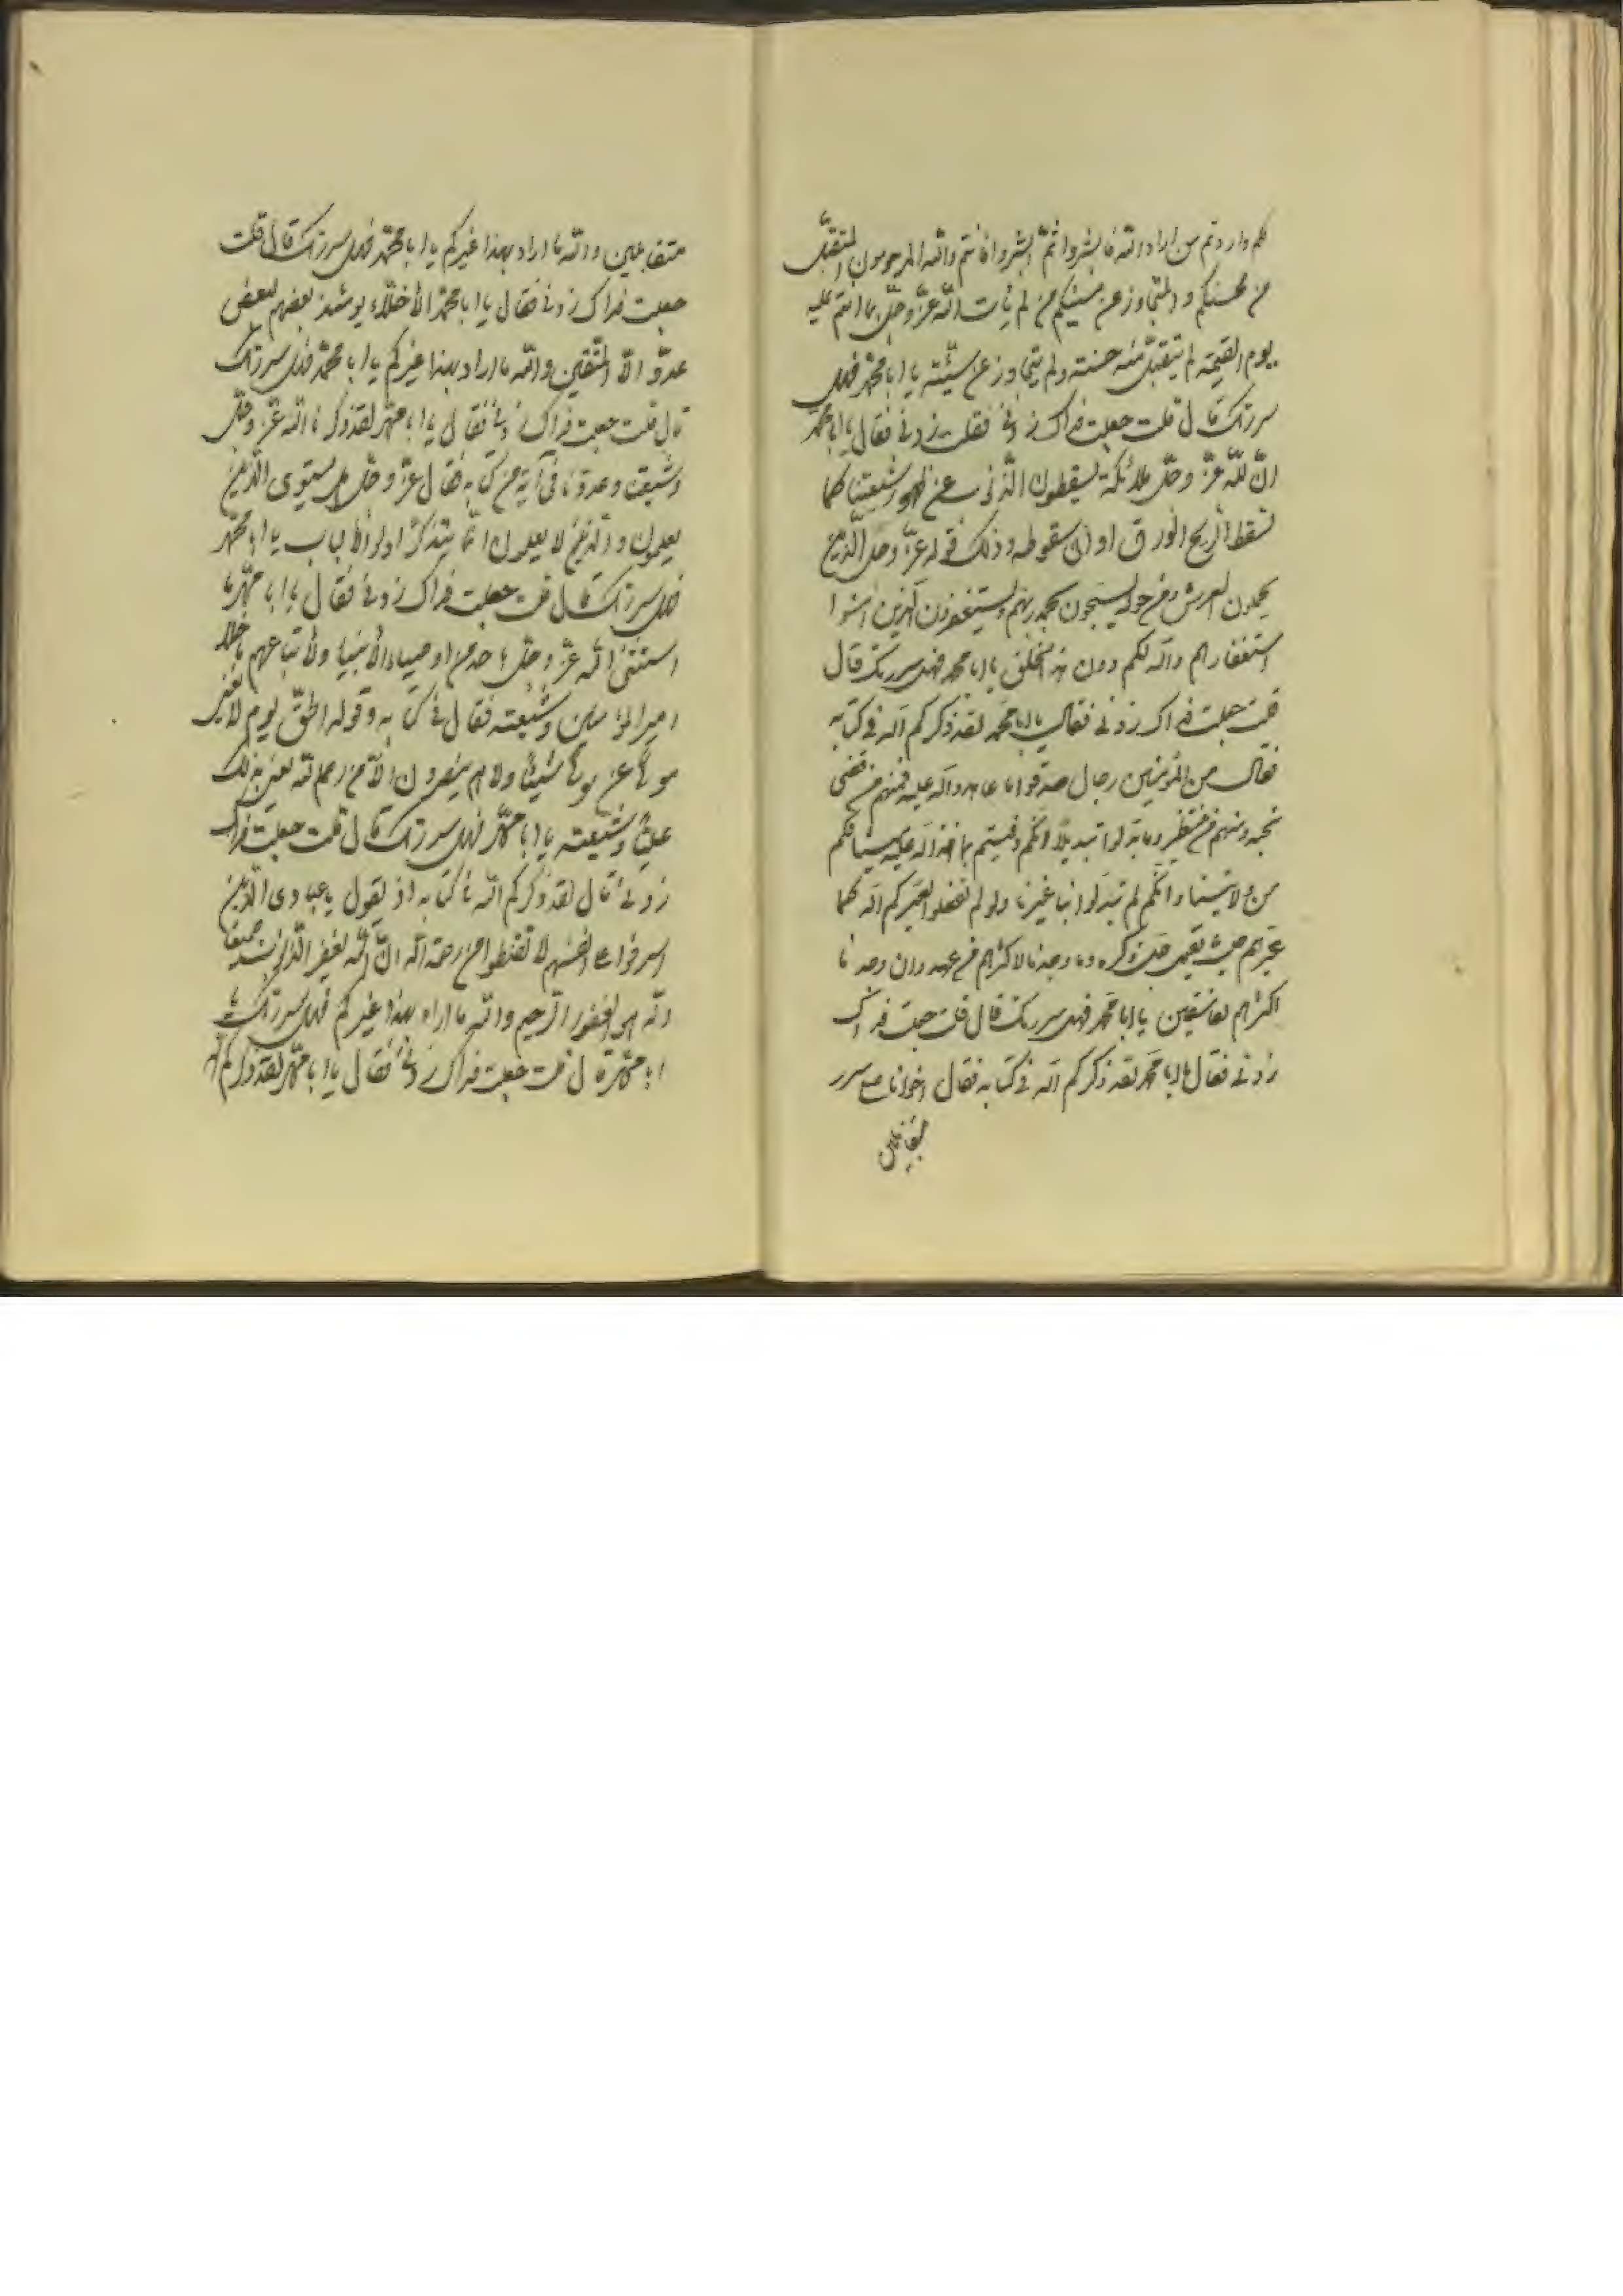 لكم واردتم من اراد الله فابشروا ثم ابشروا فانتم والله المرحومون المتقبل
من محسنكم والمتجاوز عن مسيئكم من لم يأت الله عز وجل بما انتم عليه
يوم القيمة لم يتقبل منه حسنة ولم يتجاوز عن سيئة يا ابا محمد فهل
سررتك قال قلت جعلت فداك زدني فقلت زدني فقال يا ابا محمد
ان لله عز وجل ملائكة يسقطون الذنوب عن ظهور شيعتنا كما
تسقط الريح الورق اوان سقوطه وذلك قوله عز وجل الذين
يحملون العرش ومن حوله يسبحون بحمد ربهم ويستغفرون للذين امنوا
استغفارهم والله لكم دون هذا الخلق يا ابا محمد فهل سررتك قال
قلت جعلت فداك زدني فقال يا ابا محمد لقد ذكركم الله في كتابه
فقال من المؤمنين رجال صدقوا ما عاهدوا الله عليه فمنهم من قضى
نحبه ومنهم من ينتظر وما بدلوا تبديلا انكم وفيتم بما اخذ الله عليه ميثاقكم
من ولايتنا وانكم لم تبدلوا بنا غيرنا ولو لم تفعلوا لعيركم الله كما
عيرهم حيث يقول جل ذكره وما وجدنا لاكثرهم من عهد وان وجدنا
اكثرهم لفاسقين يا ابا محمد فهل سررتك قال قلت جعلت فداك
زدني فقال يا ابا محمد لقد ذكركم الله في كتابه فقال اخوانا على سرر
متقابلين
متقابلين والله ما اراد بهذا غيركم يا ابا محمد فهل سررتك قال قلت
جعلت فداك زدني فقال يا ابا محمد الأخلاء يومئذ بعضهم لبعض
عدو الا المتقين والله ما اراد بهذا غيركم يا ابا محمد فهل سررتك
قال قلت جعلت فداك زدني فقال يا ابا محمد لقد ذكرنا الله عز وجل
وشيعتنا وعدونا في آية من كتابه فقال عز وجل هل يستوي الذين
يعلمون والذين لا يعلمون انما يتذكر اولوا الألباب يا ابا محمد
فهل سررتك قال قلت جعلت فداك زدني فقال يا ابا محمد ما
استثنى الله عز وجل باحد من اوصياء الأنبياء ولا اتباعهم ما خلا
امير المؤمنين وشيعته فقال في كتابه وقوله الحق يوم لا يغني
مولى عن مولى شيئا ولا هم ينصرون الا من رحم الله يعني بذلك
عليا وشيعته يا ابا محمد فهل سررتك قال قلت جعلت فداك
زدني قال لقد ذكركم الله في كتابه اذ يقول يا عبادي الذين
اسرفوا على انفسهم لا تقنطوا من رحمة الله ان الله يغفر الذنوب جميعا
انه هو الغفور الرحيم والله ما اراد بهذا غيركم فهل سررتك يا
ابا محمد قال قلت جعلت فداك زدني فقال يا ابا محمد لقد ذكركم الله